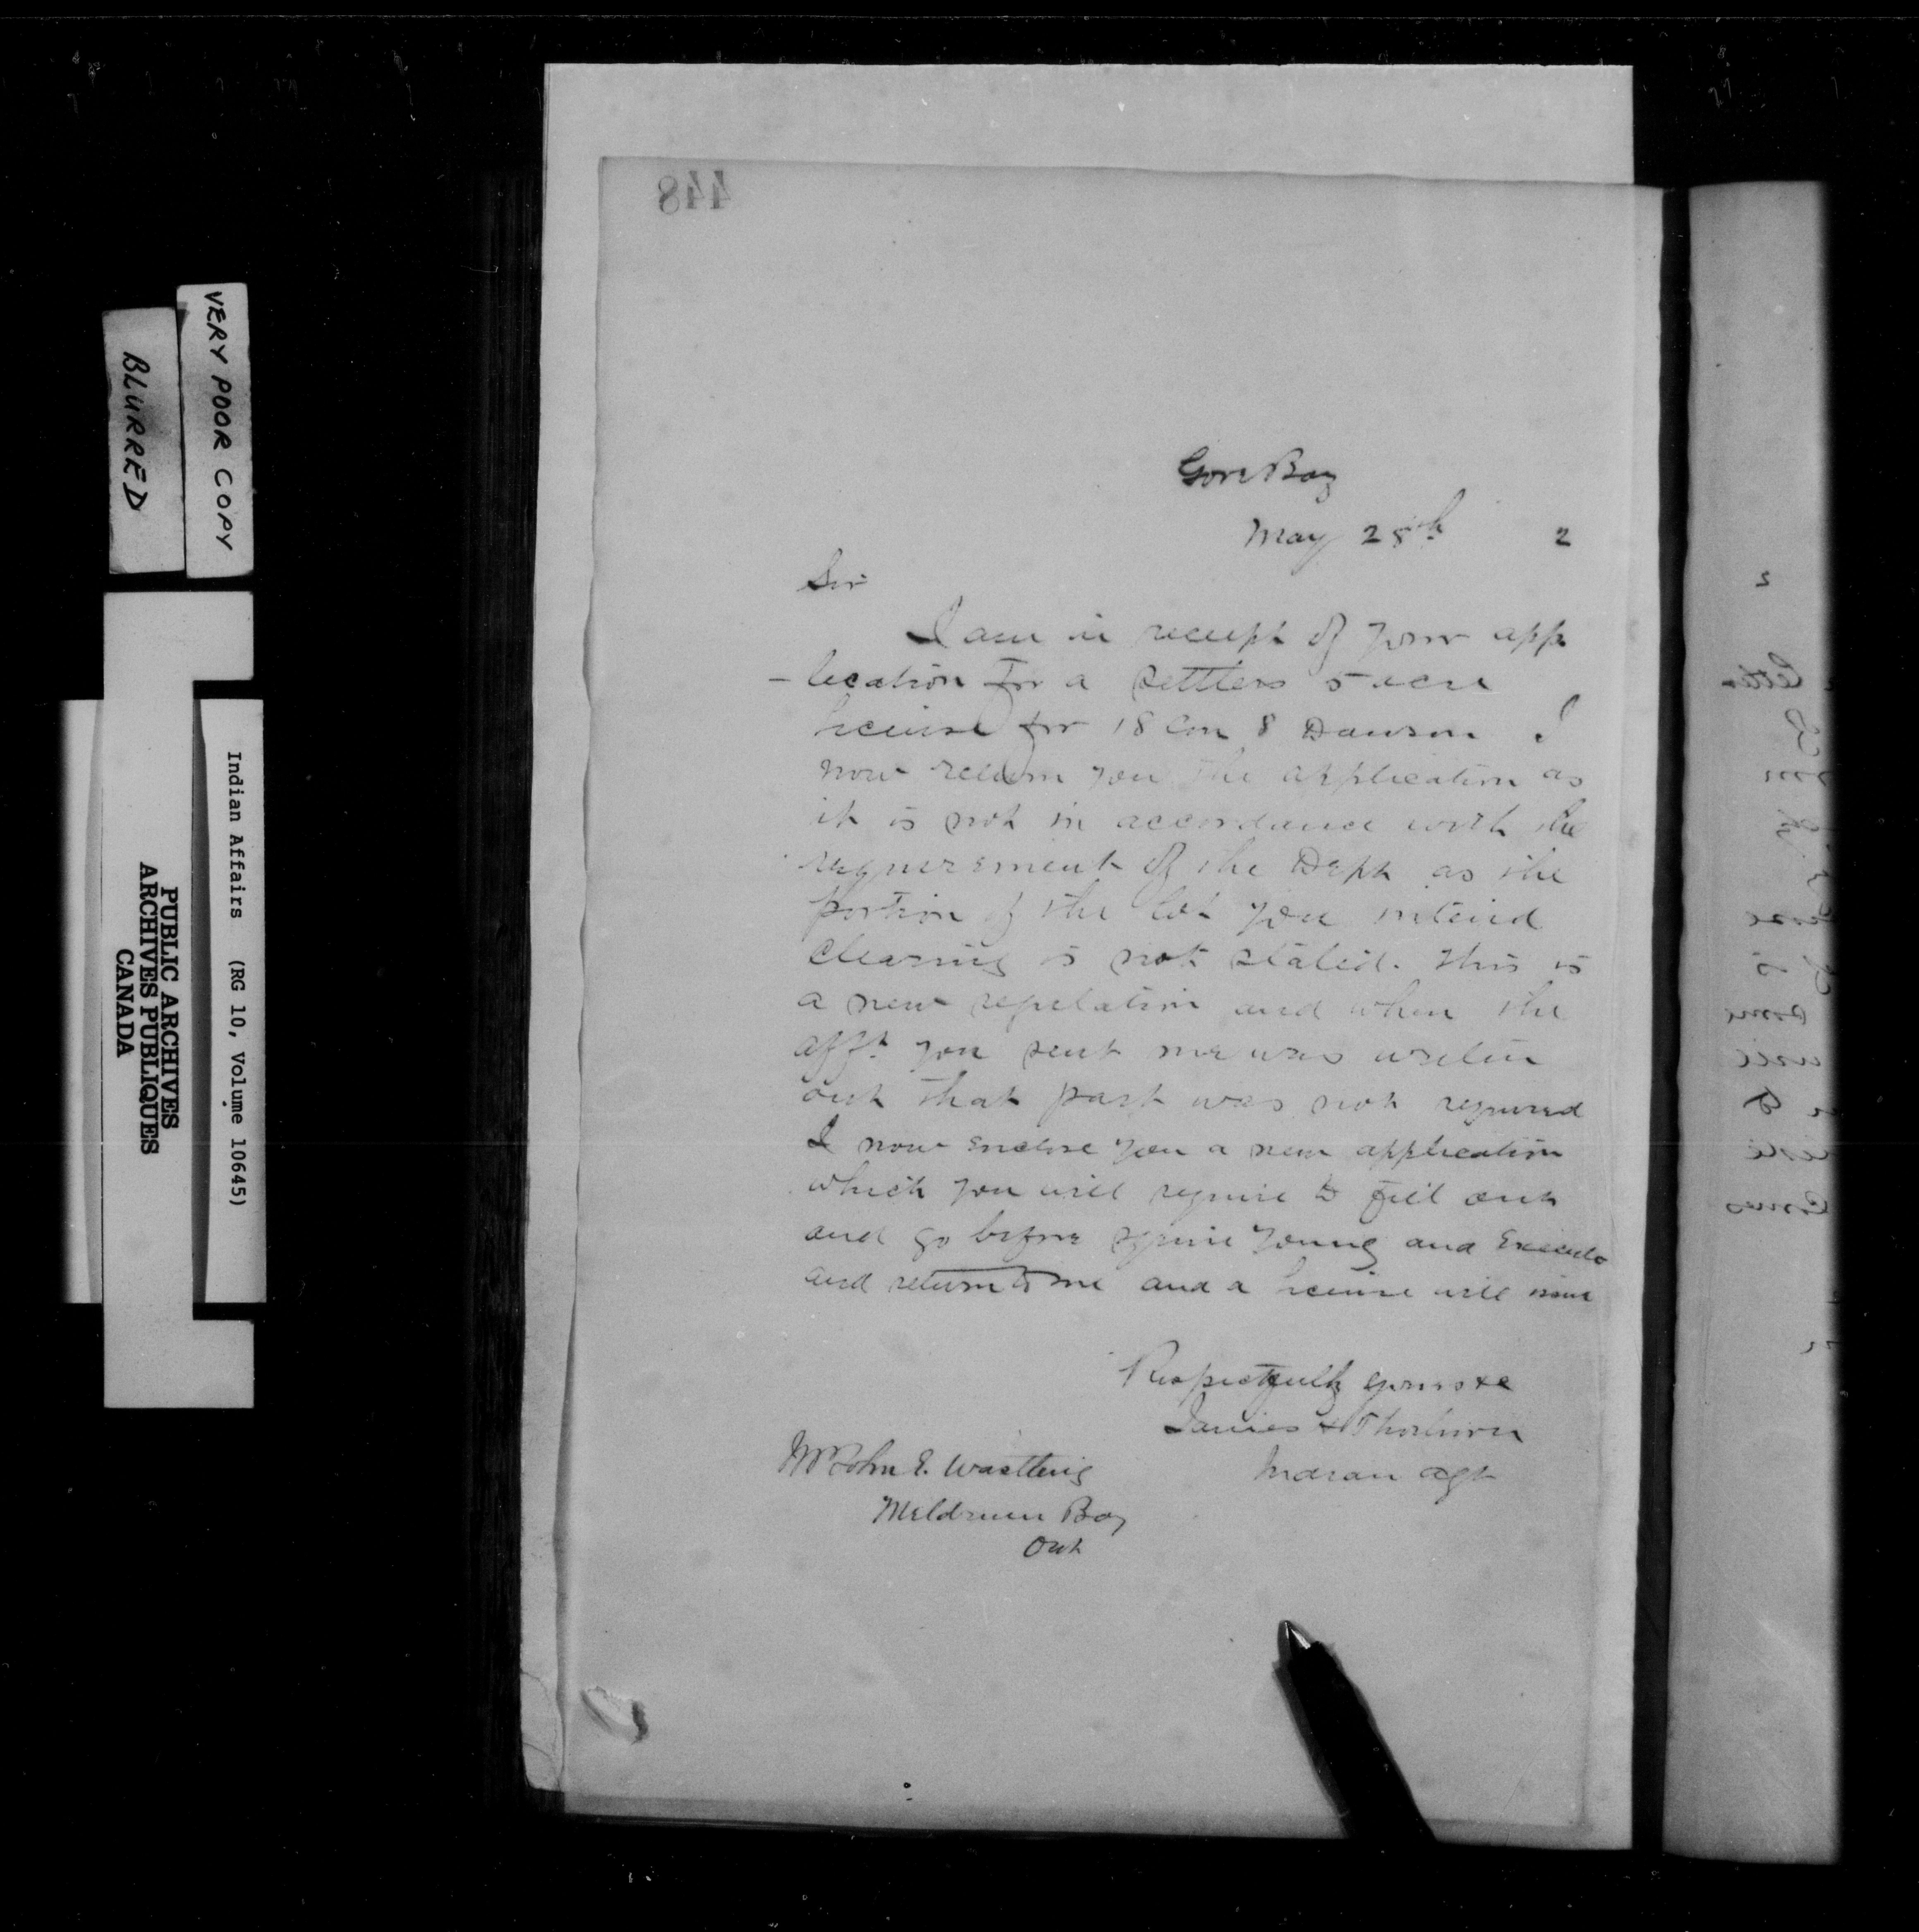 448
Gore Bay
May 28th 2
Sir
I am in receipt of your app
- lication for a settlers 5 acre
license for 18 Con 8 Dawson I
now return you the application as
it is not in accordance with the
requirement of the Dept as the
portion of the lot you intend
clearing is not stated. This is
a new regulation and when the
afft you sent me was written
out that part was not required
I now enclose you a new application
which you will require to fill out
and go before squire Young and Execute
and return to me and a license will issue
Respectfully yours &c
Thorburn
Indian agt
Mr John E.
Meldrum Bay
Ont
VERY POOR COPY
BLURRED
Indian Affairs (RG 10, Volume 10645)
PUBLIC ARCHIVES
ARCHIVES PUBLIQUES
CANADA